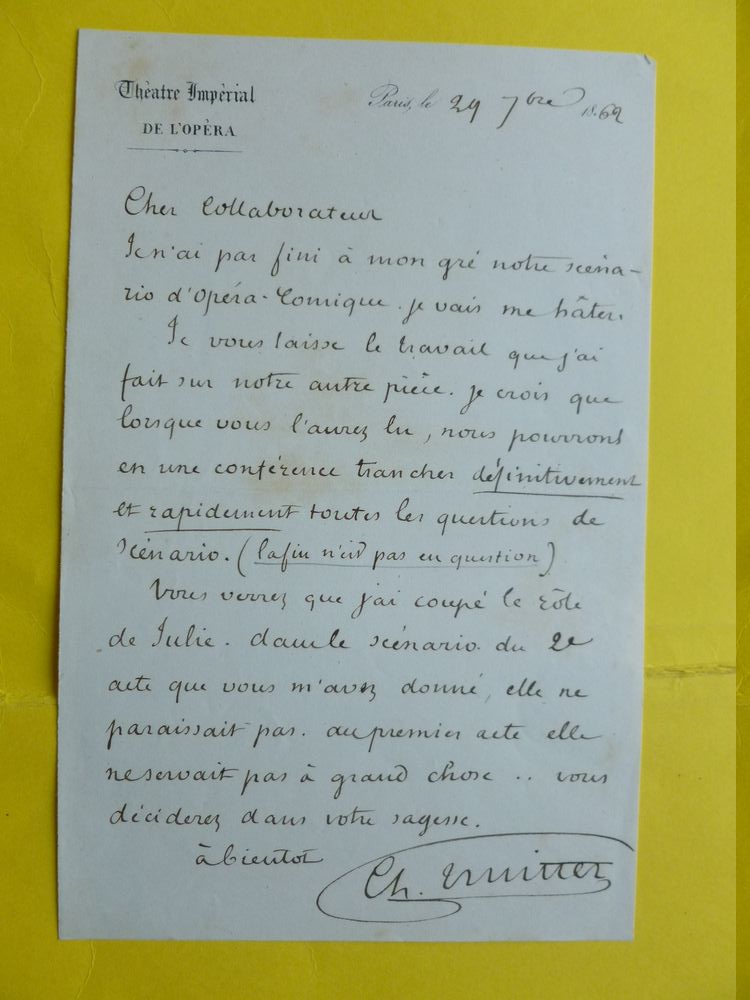 Théatre Impérial
DE L'OPÉRA
Paris, le 29 7bre 1869
Cher Collaborateur
Je n'ai pas fini à mon gré notre scéna-
rio d'Opéra-Comique. je vais me hâter.
Je vous laisse le travail que j'ai
fait sur notre autre pièce. je crois que
lorsque vous l'aurez lu, nous pourrons
en une conférence trancher définitivement
et rapidement toutes les questions de
scénario. (la fin n'est pas en question)
Vous verrez que j'ai coupé le rôle
de Julie. dans le scénario du 2e
acte que vous m'avez donné, elle ne
paraissait pas. au premier acte elle
ne servait pas à grand chose .. vous
déciderez dans votre sagesse.
à bientot
Ch. Nuitter